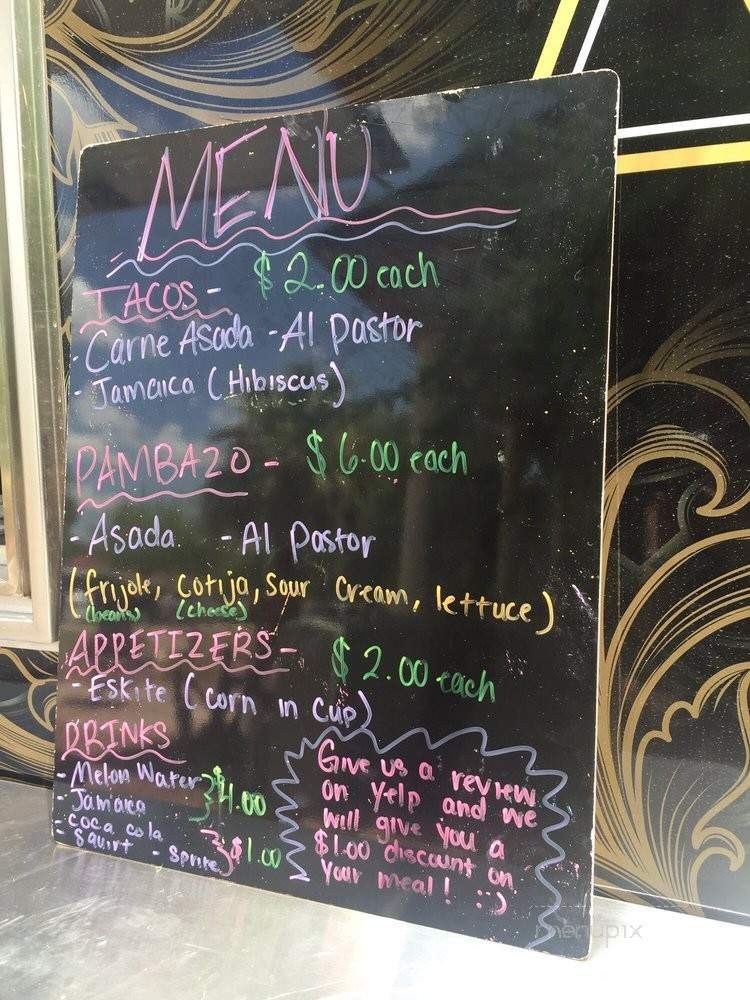 MENU
TACOS - $2.00 each
- Carne Asada - Al Pastor
- Jamaica (Hibiscus)
PAMBAZO - $6.00 each
- Asada - Al Pastor
(frijole, cotija, sour cream, lettuce)
(beans) (cheese)
APPETIZERS - $2.00 each
- Eskite (corn in cup)
DRINKS
- Melon Water
- Jamaica $4.00
- coca cola
- Squirt - Sprite $1.00
Give us a review
on yelp and we
will give you a
$1.00 discount on
your meal! :)
menupix